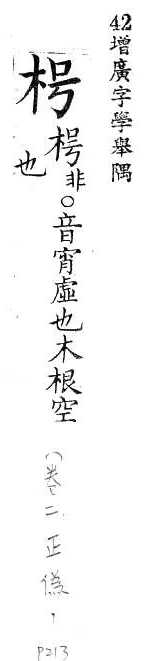 42增廣字學舉隅
枵
枵非○音宵虛也木根空
也
(卷二.正僞,
P213